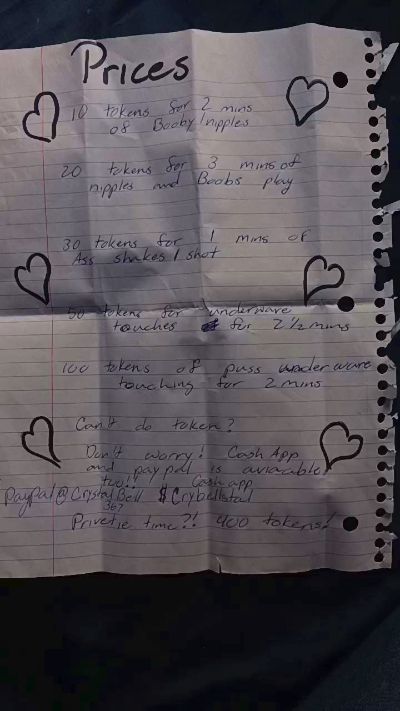 Prices
10 tokens for 2 mins
of Booby/nipples
20 tokens for 3 mins of
nipples and Boobs play
30 tokens for 1 mins of
Ass shakes 1 shot
50 tokens for underware
touches for 2 1/2 mins
100 tokens of puss underware
touching for 2 mins
Can't do token?
Don't worry! Cash App
and paypal is aviacable
two!! Cash app
PayPal@CrystalBell $Crybellstad
367
Privetie time?! 400 tokens!